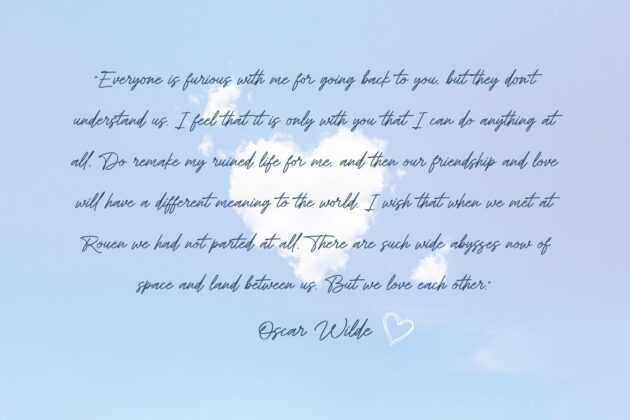 "Everyone is furious with me for going back to you, but they don't
understand us. I feel that it is only with you that I can do anything at
all. Do remake my ruined life for me, and then our friendship and love
will have a different meaning to the world. I wish that when we met at
Rouen we had not parted at all. There are such wide abysses now of
space and land between us. But we love each other."
Oscar Wilde